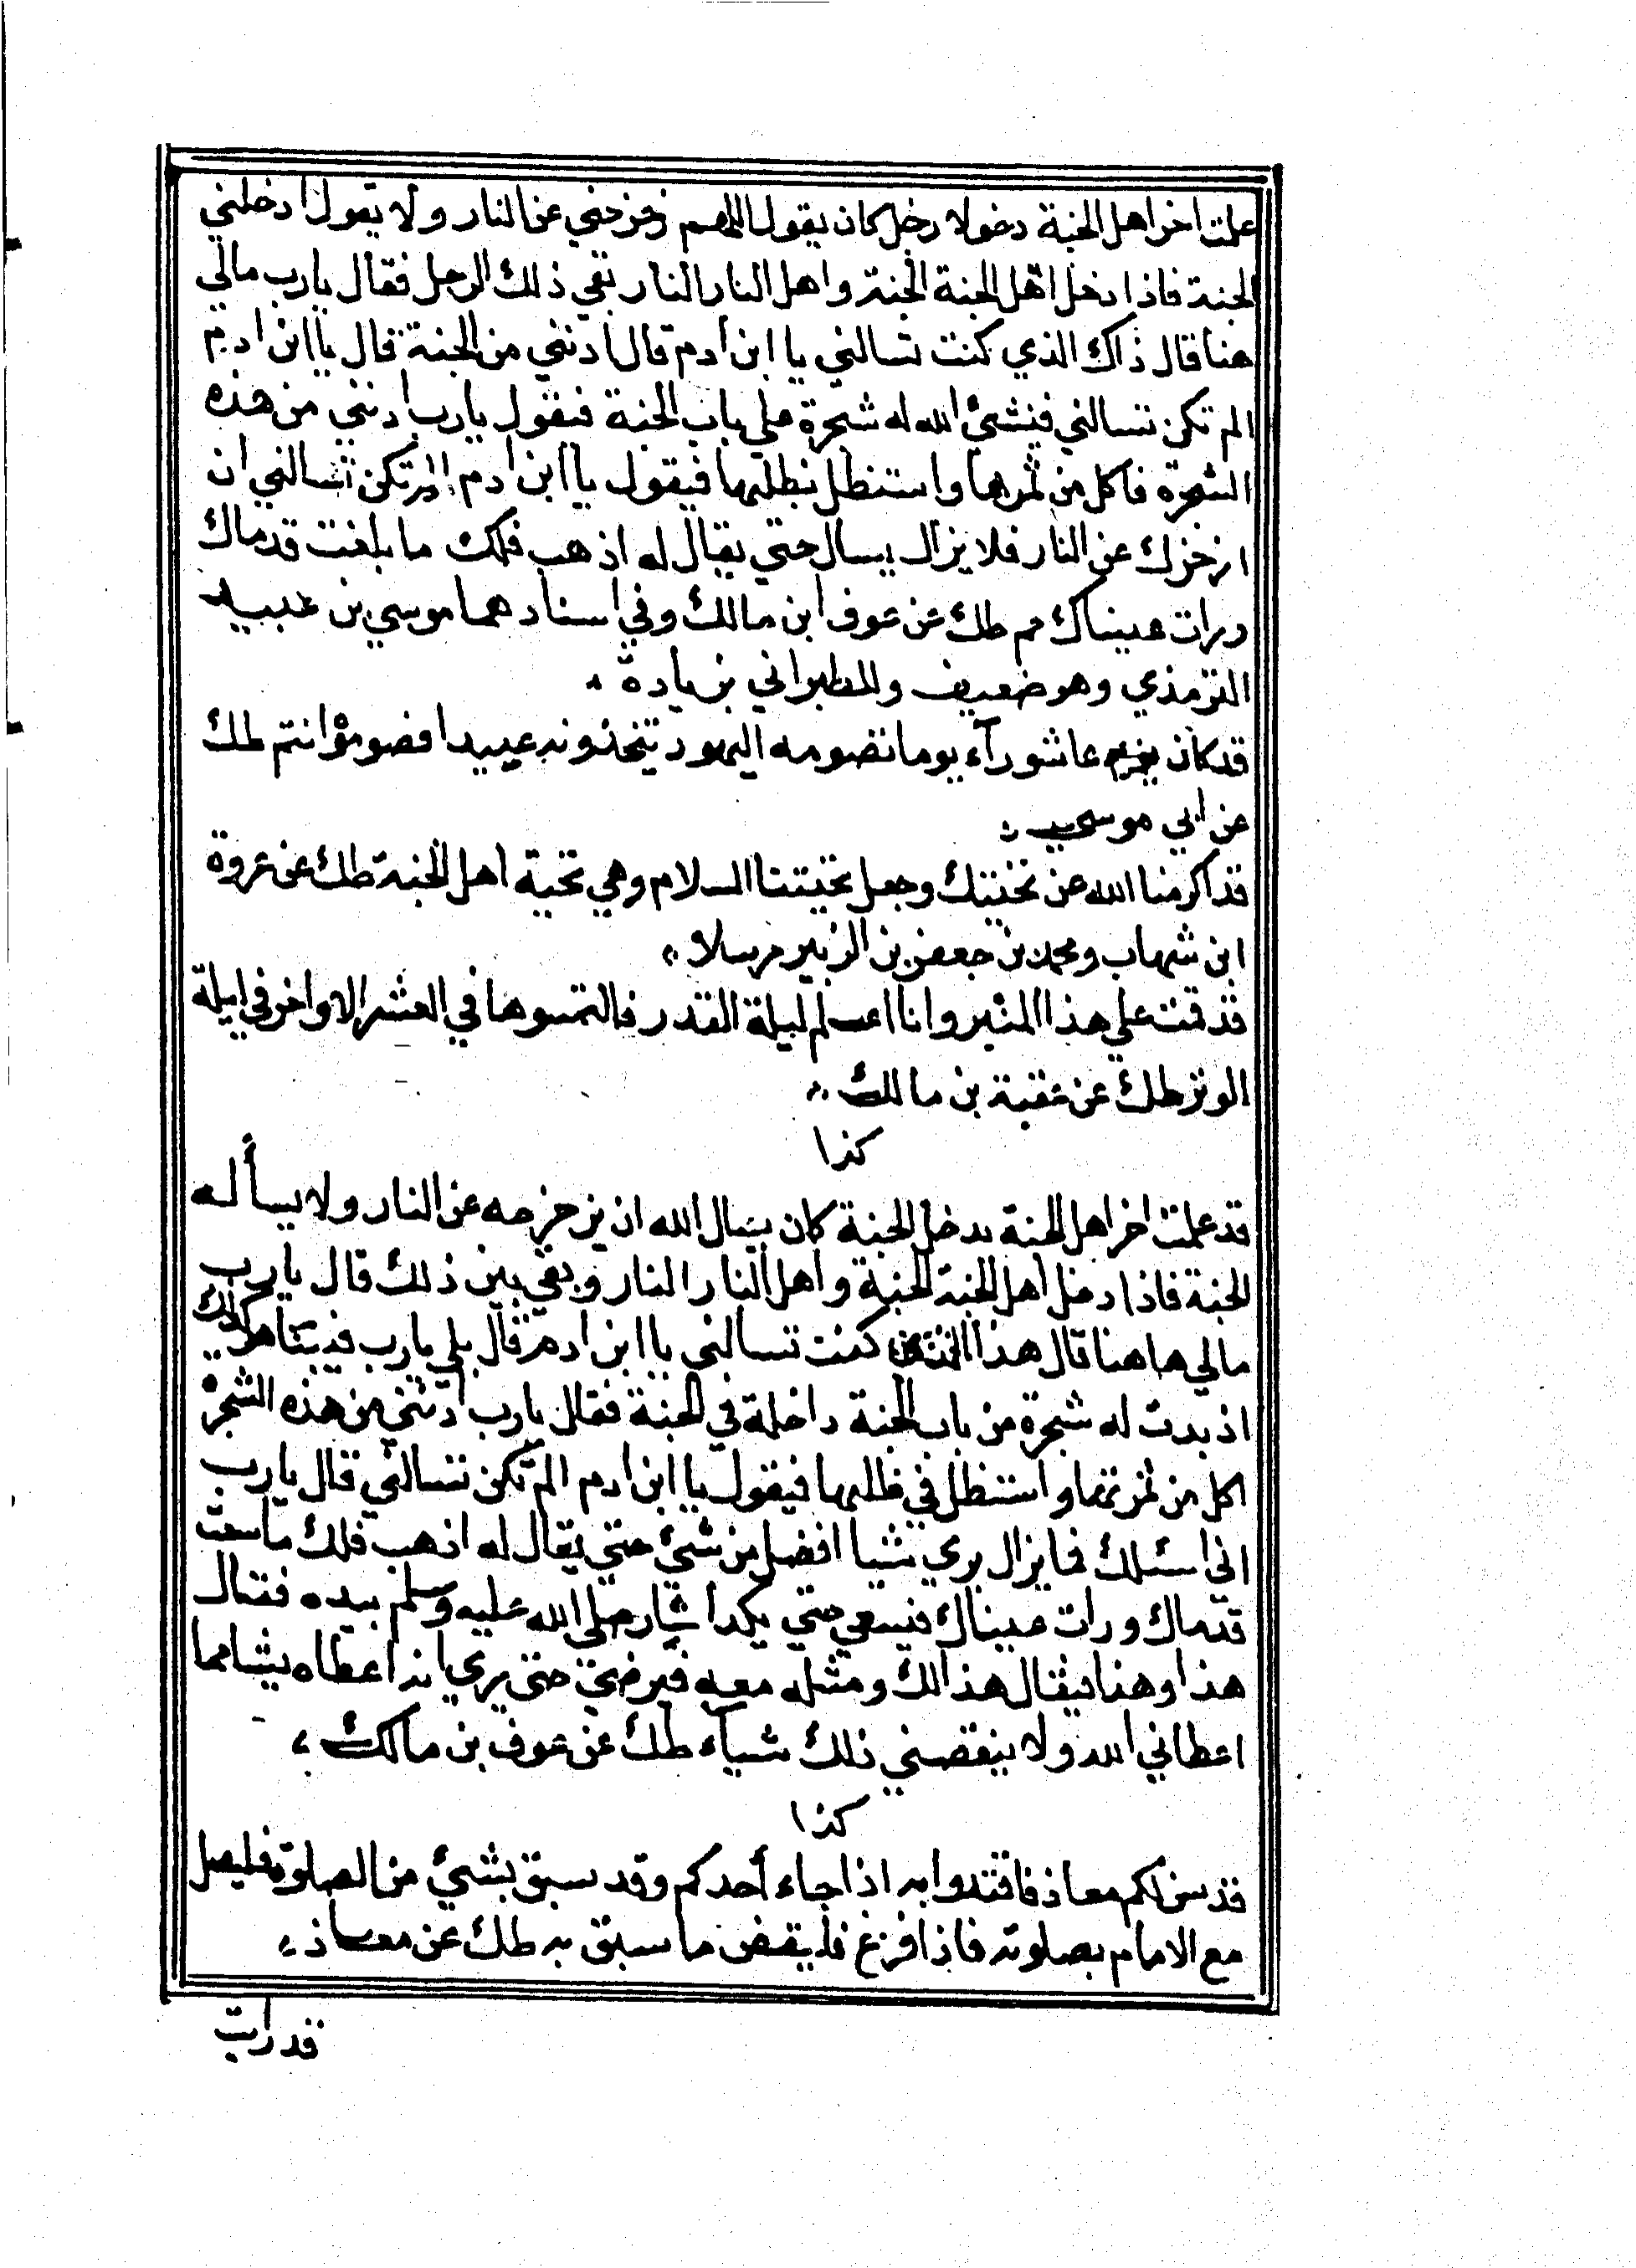 علمت اخر اهل الجنة دخولا رجل كان يقول اللهم زحزحني عن النار ولا يقول ادخلني
الجنة فاذا دخل اهل الجنة الجنة واهل النار النار بقي ذلك الرجل فقال يارب مالي
هنا قال ذاك الذي كنت تسالني يا ابن ادم قال ادنني من الجنة قال يا ابن ادم
الم تكن تسالني فينشئ الله له شجرة على باب الجنة فيقول يارب ادنني من هذه
الشجرة فاكل من ثمرها واستظل بظلها فيقول يا ابن ادم الم تكن تسالني ان
ازحزك عن النار فلا يزال يسال حتي يقال له اذهب فلك ما بلغت قدماك
ورات عيناك م طك عن عوف ابن مالك وفي اسنادهما موسي بن عبيد
الترمذي وهو ضعيف وللطبراني بزيادة
قد كان عاشورآء يوما تصومه اليهود تتخذونه عيدا فصوموا انتم طك
عن ابي موسي
قد اكرمنا الله عن تحيتك وجعل تحيتنا السلام وهي تحية اهل الجنة طك عن عروة
ابن شهاب ومحمد بن جعفر بن الزبير مرسلا
قد قمت علي هذا المنبر وانا اعلم ليلة القدر فالتمسوها في العشر الاواخر في ليلة
الوتر طك عن عقبة بن مالك
كذا
قد علمت اخر اهل الجنة يدخل الجنة كان يسال الله ان يزحزحه عن النار ولا يسأله
الجنة فاذا دخل اهل الجنة الجنة واهل النار النار وبقي بين ذلك قال يارب
مالي هاهنا قال هذا كنت تسالني يا ابن ادم قال بلي يارب فبينا هو كذلك
اذ بدت له شجرة من باب الجنة داخلة في الجنة فقال يارب ادنني من هذه الشجرة
اكل من ثمرتها واستظل في ظلها فيقول يا ابن ادم الم تكن تسالني قال يارب
اني اسئلك فما يزال يري شيا افضل من شئ حتي يقال له اذهب فلك ما سعت
قدماك ورات عيناك فيسعي حتي يكد اشار صلي الله عليه وسلم بيده فقال
هذا وهنا فيقال هذا لك ومثله معه فيرضي حتى يري انه اعطاه شيا ما
اعطاني الله ولا ينقصني ذلك شيآء طك عن عوف بن مالك
كذا
قد سن لكم معاذ فاقتدوا به اذا جاء أحدكم وقد سبق بشئ من الصلوة فليصل
مع الامام بصلوته فاذا فرغ فليقض ما سبق به طك عن معاذ
قد رات